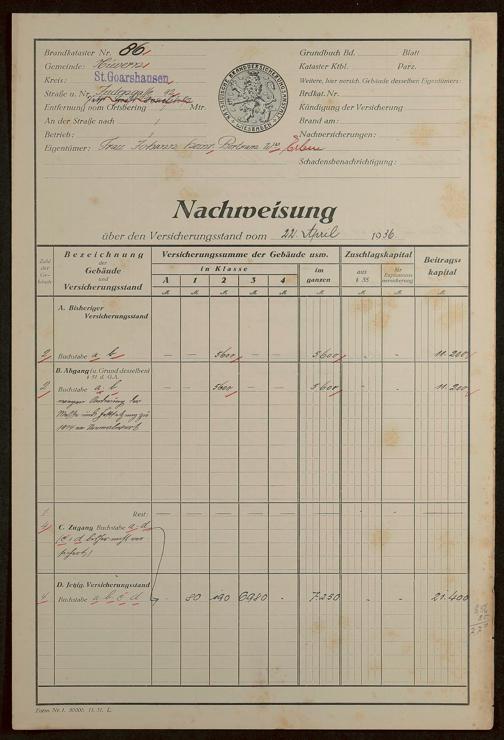 Brandkataster Nr. 86
Gemeinde:
Kreis: St.Goarshausen
Straße u. Nr.
Entfernung vom Ortsbering Mtr.
An der Straße nach
Betrieb:
Eigentümer: Frau Johann Wwe Erben
Grundbuch Bd. Blatt
Kataster Ktbl. Parz.
Weitere, hier versich. Gebäude desselben Eigentümers:
Brdkat. Nr.
Kündigung der Versicherung
Brand am:
Nachversicherungen:
Schadensbenachrichtigung:
NASSAUISCHE BRANDVERSICHERUNGSANSTALT WIESBADEN
Nachweisung
über den Versicherungsstand vom 22. April 1936
Zahl der Gebäude
Bezeichnung der Gebäude und Versicherungsstand
Versicherungssumme der Gebäude usw.
in Klasse
A 1 2 3 4
im ganzen
Zuschlagskapital
aus § 35
für Explosionsversicherung
Beitragskapital
M. M. M. M. M. M. M. M. M.
A. Bisheriger Versicherungsstand
2 Buchstabe a, b — — 5600 — — 5600 - - 11.200
B. Abgang (u. Grund desselben)
§ 31 d. G.A.
2 Buchstabe a, b — — 5600 — — 5600 - - 11.200
wegen
1914
1 Rest:
4 C. Zugang Buchstabe a-d
D. Jetzig. Versicherungsstand
4 Buchstabe a, b, c, d - 80 190 6980 - 7.250 - - 21.400
Form. Nr. 1. 30000. 11. 31. L.